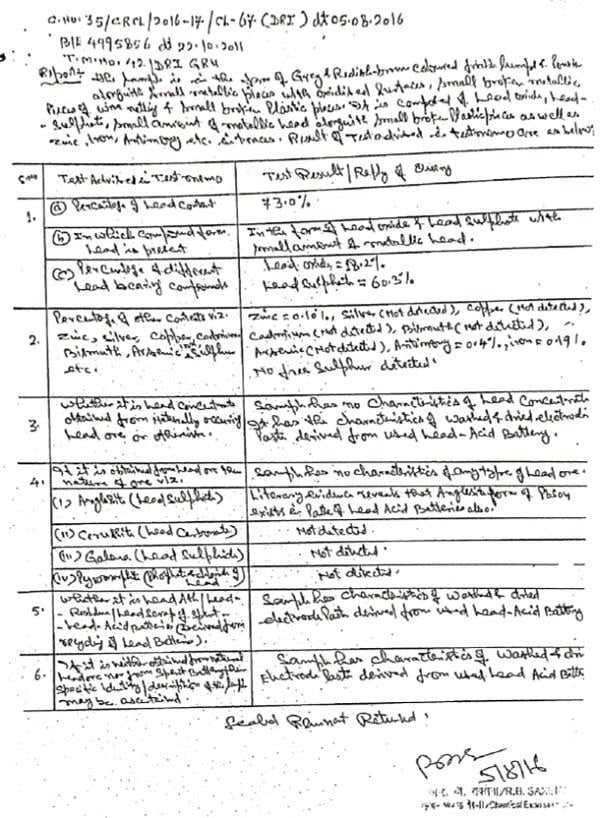 C.No: 35/CRCL/2016-17/CL-67 (DRI) dt 05.08.2016
B/E 4995856 dt 22.10.2011
T.M.No: 42/DRI GRU
Report: The sample is in the form of Grey & Redish-brown coloured lumps &
alongwith small metallic pieces with oxidised surfaces, small broken metallic
Pieces of wire netting & small broken Plastic pieces. It is composed of Lead oxide, Lead-
-Sulphate, small amount of metallic lead alongwith small broken Plastic pieces as well as
zinc, iron, Antimony etc. in traces. Result of Test advised in testmemo are as below
S.No Test Advised in Testmemo Test Result/Reply of Query
1. (a) Percentage of Lead content 73.0%
(b) In which compound form Lead is present
In the form of Lead oxide & Lead Sulphate with
small amount of metallic lead.
(c) Percentage of different
Lead bearing compounds
Lead oxide = 18.2%
Lead Sulphate = 60.3%
2. Percentage of other contents viz.
zinc, silver, Copper, Cadmium
Bismuth, Arsenic, iron, Sulphur
etc.
Zinc = 0.10%, Silver (Not detected), Copper (Not detected),
Cadmium (Not detected), Bismuth (Not detected),
Arsenic (Not detected), Antimony = 0.4%, iron = 0.19%
No free Sulphur detected.
3. Whether it is Lead Concentrate
obtained from naturally occuring
Lead ore or otherwise.
Sample has no characteristics of Lead Concentrate
It has the characteristics of washed & dried electrode
Paste derived from used Lead-Acid Battery.
4. If it is obtained from Lead ore then
nature of ore viz.
Sample has no characteristics of any type of Lead ore.
(i) Anglesite (Lead Sulphate)
Literary evidence reveals that Anglesite form of PbSO4
exists in Paste of Lead Acid Batteries also.
(ii) Cerussite (Lead Carbonate) Not detected.
(iii) Galena (Lead Sulphide) Not detected.
(iv) Pyromorphite (Phosphate & chloride of Lead Not detected.
5. Whether it is Lead Ash/Lead-
-Residue/Lead Scrap of Spent
-Lead-Acid batteries (Derived from
recycling of Lead Batteries).
Sample has characteristics of washed & dried
electrode Paste derived from used Lead-Acid Battery
6. If it is neither obtained from natural
Lead ore nor from Spent Battery then
Specific identity/description of the
may be ascertained.
Sample has characteristics of washed & dri
Electrode Paste derived from used Lead Acid Batte
Sealed Remnant Returned.
5/8/16
/R.B. SAXENA
Chemical Examiner